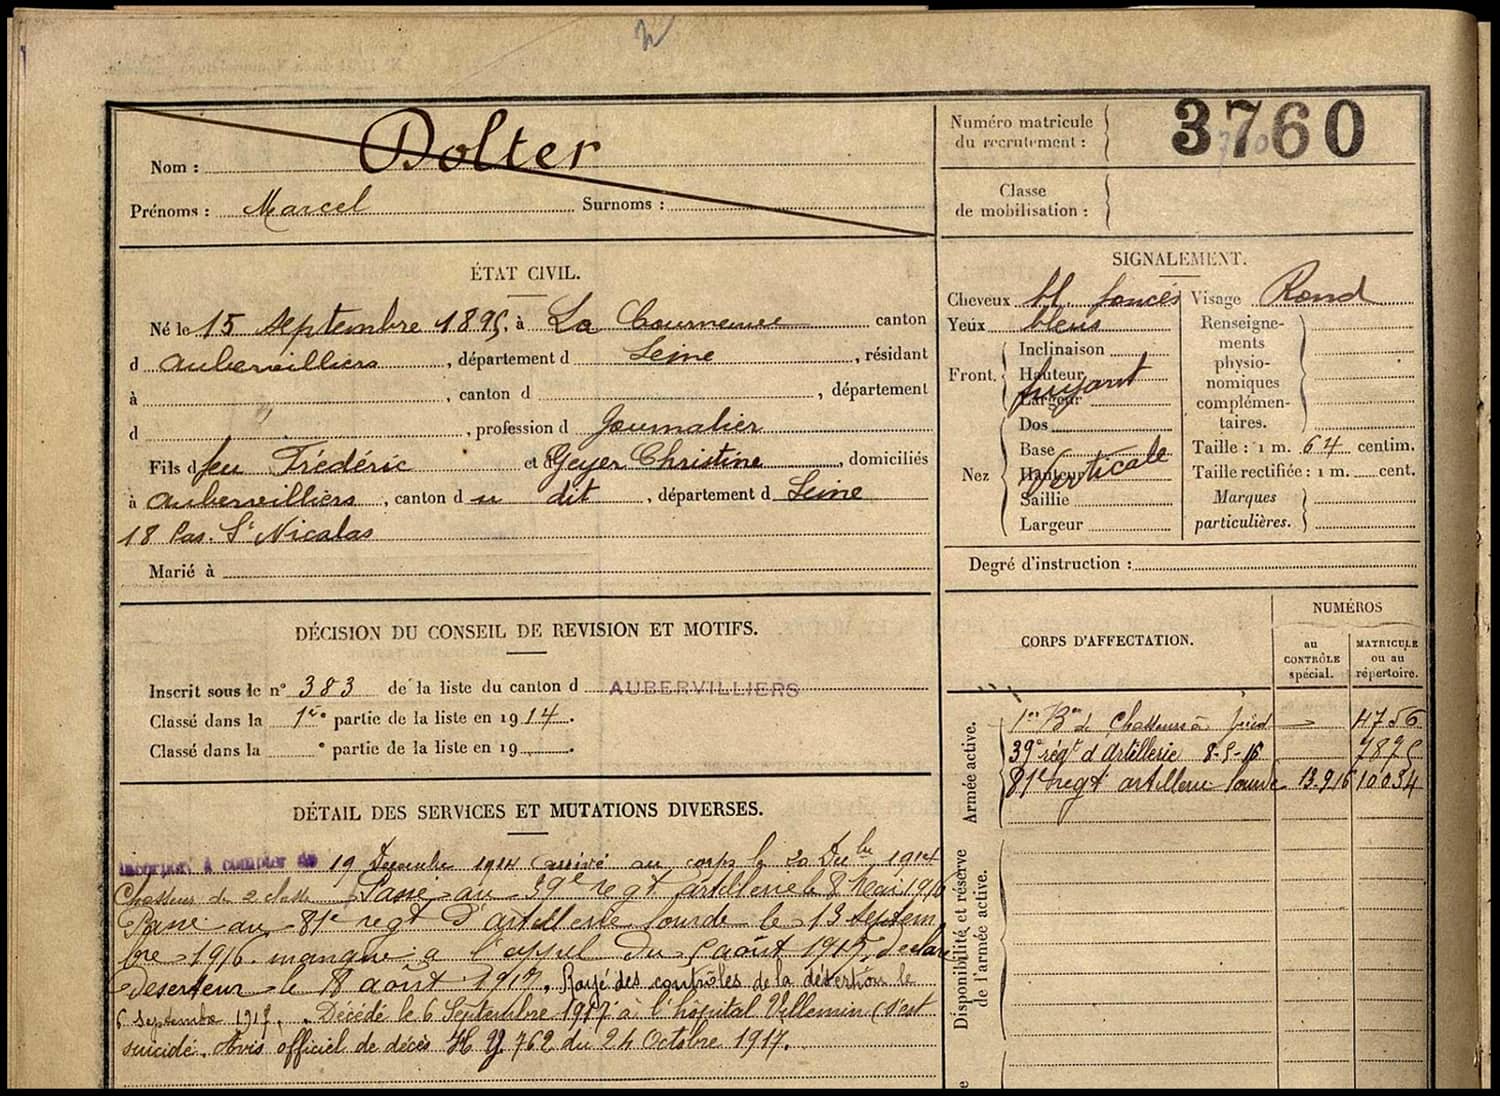 Nom : Dolter
Prénoms : Marcel Surnoms :
Numéro matricule
du recrutement :
3760
Classe
de mobilisation :
ÉTAT CIVIL.
Né le 15 septembre 1895, à La Courneuve canton
d Aubervilliers, département d Seine, résidant
à , canton d , département
d , profession d Journalier
Fils d feu Frédéric et d Geyer Christine, domiciliés
à Aubervilliers, canton d u dit, département d Seine
18 Pas. St Nicolas
Marié à
SIGNALEMENT.
Cheveux bl. foncés
Yeux bleus
Front. Inclinaison
Hauteur
fuyant
Largeur
Nez Dos
Base
Hauteur
Verticale
Saillie
Largeur
Visage Rond
Renseigne-
ments
physio-
nomiques
complémen-
taires.
Taille : 1 m. 64 centim.
Taille rectifiée : 1 m. cent.
Marques
particulières.
Degré d'instruction :
DÉCISION DU CONSEIL DE REVISION ET MOTIFS.
Inscrit sous le n° 383 de la liste du canton d AUBERVILLIERS
Classé dans la 1re partie de la liste en 1914.
Classé dans la ° partie de la liste en 19 .
CORPS D'AFFECTATION.
NUMÉROS
au
CONTRÔLE
spécial.
MATRICULE
ou au
répertoire.
Armée active.
1er Bon de Chasseurs à pied 4756
39e régt d'Artillerie 8-5-16 7895
81e regt artillerie lourde 13.9.16 10034
Disponibilité et réserve
de l'armée active.
DÉTAIL DES SERVICES ET MUTATIONS DIVERSES.
Incorporé à compter du 19 Décembre 1914 arrivé au corps le 20 Dbre 1914
Chasseur de 2 classe Passé au 39e regt artillerie le 8 Mai 1916
Passé au 81e regt d'artillerie lourde le 13 Septem
bre 1916. manque a l'appel du 5 août 1917, déclaré
Déserteur le 8 août 1917. Rayé des contrôles de la désertion le
6 septembre 1917. Décédé le 6 Septembre 1917 à l'hôpital Villemin (s'est
suicidé. Avis officiel de décès 762 du 24 Octobre 1917.